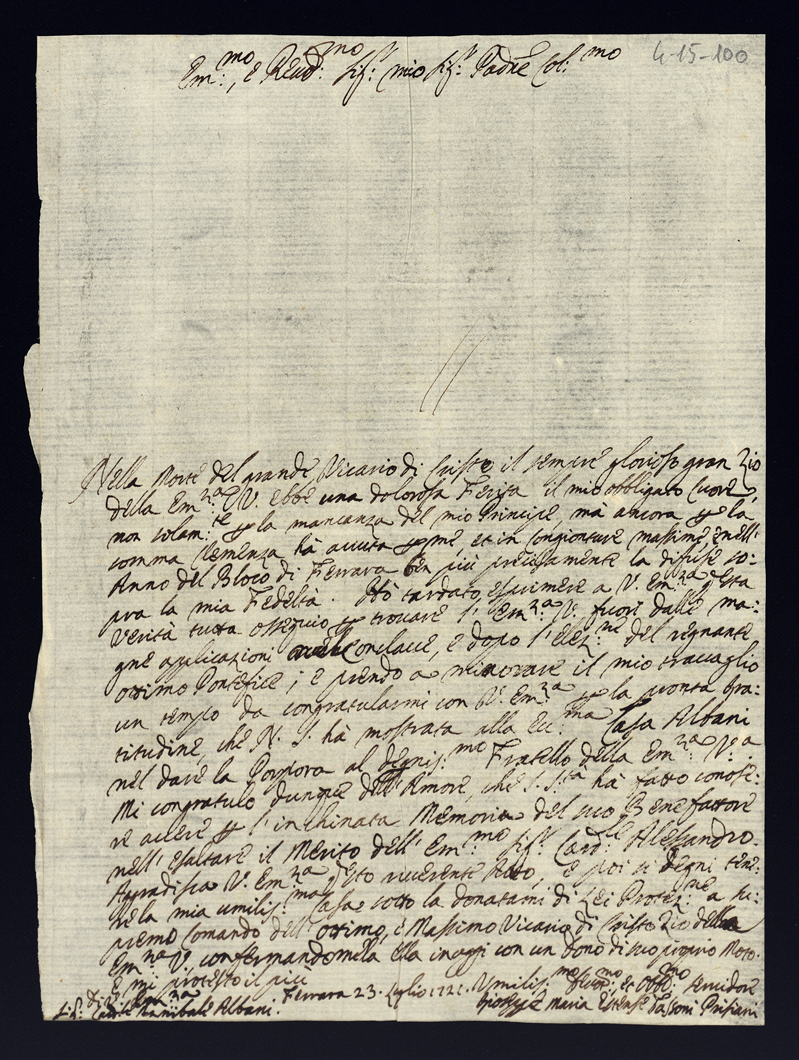 4-15-100
Em:mo, e Reud:mo Sig:r mio Sig:r Padrē Col:mo
Nella Morte del grande Vicario di Cristo il sempre glorioso gran Zio
della Em:za V. ebbe una dolorosa Ferita il mio obbligato Cuore,
non solam:te p la mancanza del mio Principe, mà ancora p la
somma Clemenza hà avuta p me, et in congionture massime nell'
Anno del Bloco di Ferrara ben più precisamente la difuse so:
pra la mia Fedeltà. Hò tardato esprimere a V. Em:za q'sta
verità tutta ossequio p trovare l'Em:za V. fuori dalle ma:
gne applicazioni Conclave, e dopo l'Elez:ne del regnante
ottimo Pontefice; e prendo a minorare il mio travaglio
un tempo da congratularmi con V. Em:za p la pronta Gra:
titudine, che N. S. hà mostrata alla Ecc:ma Casa Albani
nel dare la Porpora al degnis:mo Fratello della Em:za V:a
Mi congratulo dunque dell'Amore, che S. S:tà hà fatto conosc:
re avere p l'inchinata Memoria del suo Benefattore
nell'esaltare il Merito dell'Em:mo Sig:r Card:le Alessandro.
Aggradisca V. Em:za q'sto riverente Atto, e poi si degni tene:
re la mia umilis:ma Casa sotto la donatami di Lei Protez:ne a su:
premo Comando dell'ottimo, e Massimo Vicario di Cristo Zio della
Em:za V. confermandomela Ella in oggi con un dono di suo proprio Moto.
E mi protesto il più
di V. Em:za Ferrara 23. Luglio 1721. Umilis:mo Devot:mo, et Obb:mo Servidore
Sig:r Card:le Annibale Albani. Maria Estense Tassoni Prisiani